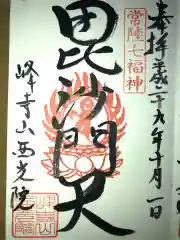 奉拝平成二十九年十月一日
常陸七福神
毘沙門天
峰寺山西光院